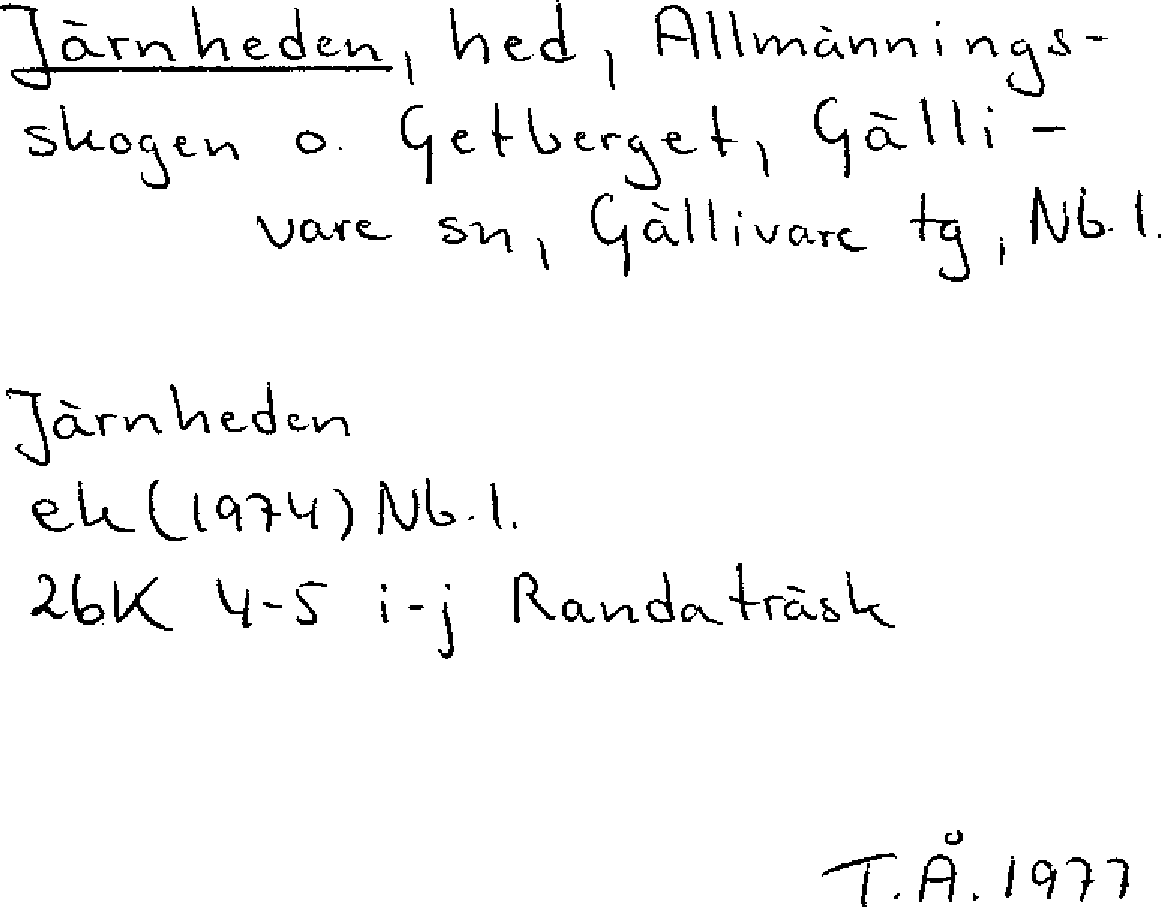 Järnheden, hed, Allmännings-
skogen o. Getberget, Gälli-
vare sn, Gällivare tg, Nb. l.
Järnheden
ek (1974) Nb. l.
26K 4-5 i-j Randaträsk
T.Å. 1977